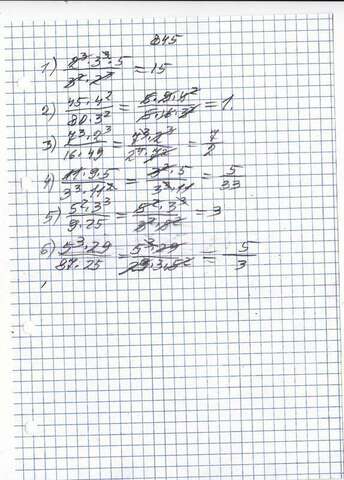 845
1) 2³·3³·5 / 3²·2³ = 15
2) 45·4² / 80·3² = 5·9·4² / 5·16·3² = 1.
3) 7³·2³ / 16·49 = 7³·2³ / 2⁴·7² = 7/2
4) 11·9·5 / 3³·11² = 3²·5 / 3³·11 = 5/33
5) 5²·3³ / 9·25 = 5²·3³ / 3²·5² = 3
6) 5³·29 / 87·25 = 5³·29 / 29·3·5² = 5/3